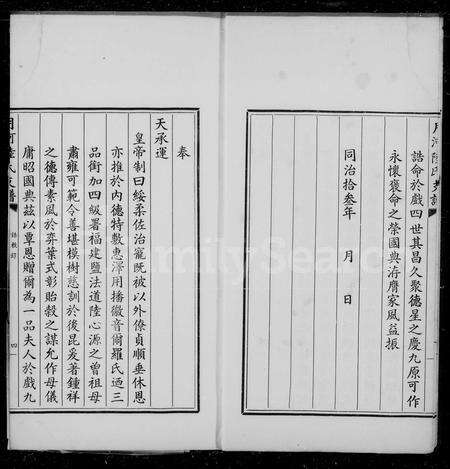 誥命於戲四世其昌久聚德星之慶九原可作
永懷褒命之榮國典洊膺家風益振
同治拾叁年 月 日
奉
天承運
皇帝制曰綏柔佐治寵既被以外僚貞順垂休恩
亦推於內德特敷惠澤用播徽音爾羅氏迺三
品銜加四級署福建鹽法道陸心源之曾祖母
肅雍可範令善堪模樹慈訓於後昆爰著鍾祥
之德傳素風於弈葉式彰貽穀之謀允作母儀
庸昭國典茲以覃恩贈爾為一品夫人於戲九
誥敕
四
FamilySearch